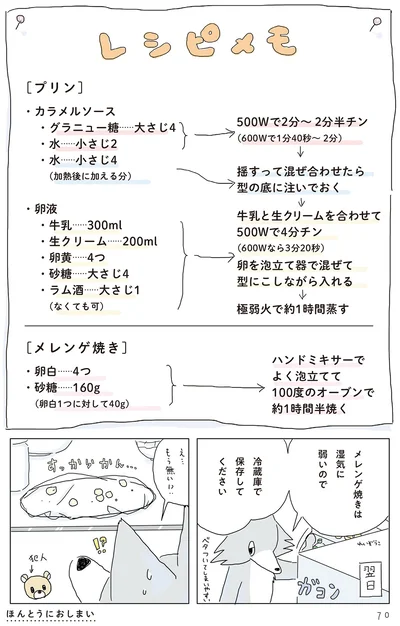 レシピメモ
[プリン]
・カラメルソース
・グラニュー糖……大さじ4
・水……小さじ2
・水……小さじ4
(加熱後に加える分)
500Wで2分〜2分半チン
(600Wで1分40秒〜2分)
↓
揺すって混ぜ合わせたら
型の底に注いでおく
↓
・卵液
・牛乳……300ml
・生クリーム……200ml
・卵黄……4つ
・砂糖……大さじ4
・ラム酒……大さじ1
(なくても可)
牛乳と生クリームを合わせて
500Wで4分チン
(600Wなら3分20秒)
卵を泡立て器で混ぜて
型にこしながら入れる
↓
極弱火で約1時間蒸す
[メレンゲ焼き]
・卵白……4つ
・砂糖……160g
(卵白1つに対して40g)
ハンドミキサーで
よく泡立てて
100度のオーブンで
約1時間半焼く
翌日
れいぞうこ
ガコン
メレンゲ焼きは
湿気に
弱いので
冷蔵庫で
保存して
ください
ベタついてしまいやすい
え…
もう無い!?
すっからかん…
!?
犯人
ほんとうにおしまい
70